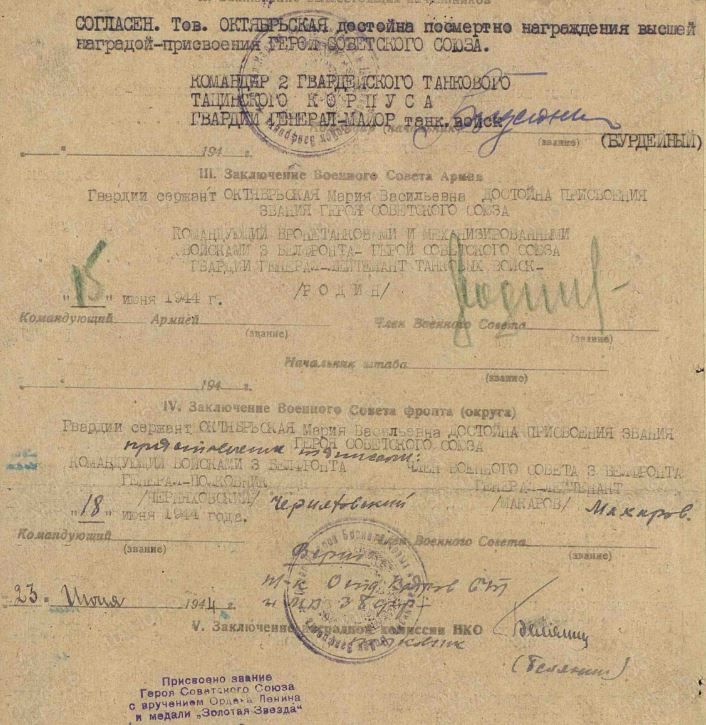 СОГЛАСЕН. Тов. ОКТЯБРЬСКАЯ достойна посмертно награждения высшей
наградой-присвоения ГЕРОЯ СОВЕТСКОГО СОЮЗА.
КОМАНДИР 2 ГВАРДЕЙСКОГО ТАНКОВОГО
ТАЦИНСКОГО КОРПУСА
ГВАРДИИ ГЕНЕРАЛ-МАЙОР танк.войск
(звание) (БУРДЕЙНЫЙ)
" " 194 г.
III. Заключение Военного Совета Армии
Гвардии сержант ОКТЯБРЬСКАЯ Мария Васильевна ДОСТОЙНА ПРИСВОЕНИЯ
ЗВАНИЯ ГЕРОЯ СОВЕТСКОГО СОЮЗА
КОМАНДУЮЩИЙ БРОНЕТАНКОВЫМИ И МЕХАНИЗИРОВАННЫМИ
ВОЙСКАМИ 3 БЕЛФРОНТА- ГЕРОЙ СОВЕТСКОГО СОЮЗА
ГВАРДИИ ГЕНЕРАЛ-ЛЕЙТЕНАНТ ТАНКОВЫХ ВОЙСК-
/РОДИН/ Родин
"15" июня 1944 г.
Командующий Армией Член Военного Совета
(звание) (звание)
Начальник штаба
(звание)
" " 194 г.
IV. Заключение Военного Совета фронта (округа)
Гвардии сержант ОКТЯБРЬСКАЯ Мария Васильевна ДОСТОЙНА ПРИСВОЕНИЯ ЗВАНИЯ
ГЕРОЯ СОВЕТСКОГО СОЮЗА
подписали:
КОМАНДУЮЩИЙ ВОЙСКАМИ 3 БЕЛФРОНТА ЧЛЕН ВОЕННОГО СОВЕТА 3 БЕЛФРОНТА
ГЕНЕРАЛ-ПОЛКОВНИК ГЕНЕРАЛ-ЛЕЙТЕНАНТ
/ЧЕРНЯХОВСКИЙ/ Черняховский /МАКАРОВ/ Макаров.
"18" июня 1944 года.
Командующий Член Военного Совета
(звание) (звание)
Верно:
23. Июня 1944 г.
V. Заключение наградной комиссии НКО
(Белянин)
Присвоено звание
Героя Советского Союза
с вручением Ордена Ленина
и медали „Золотая Звезда"